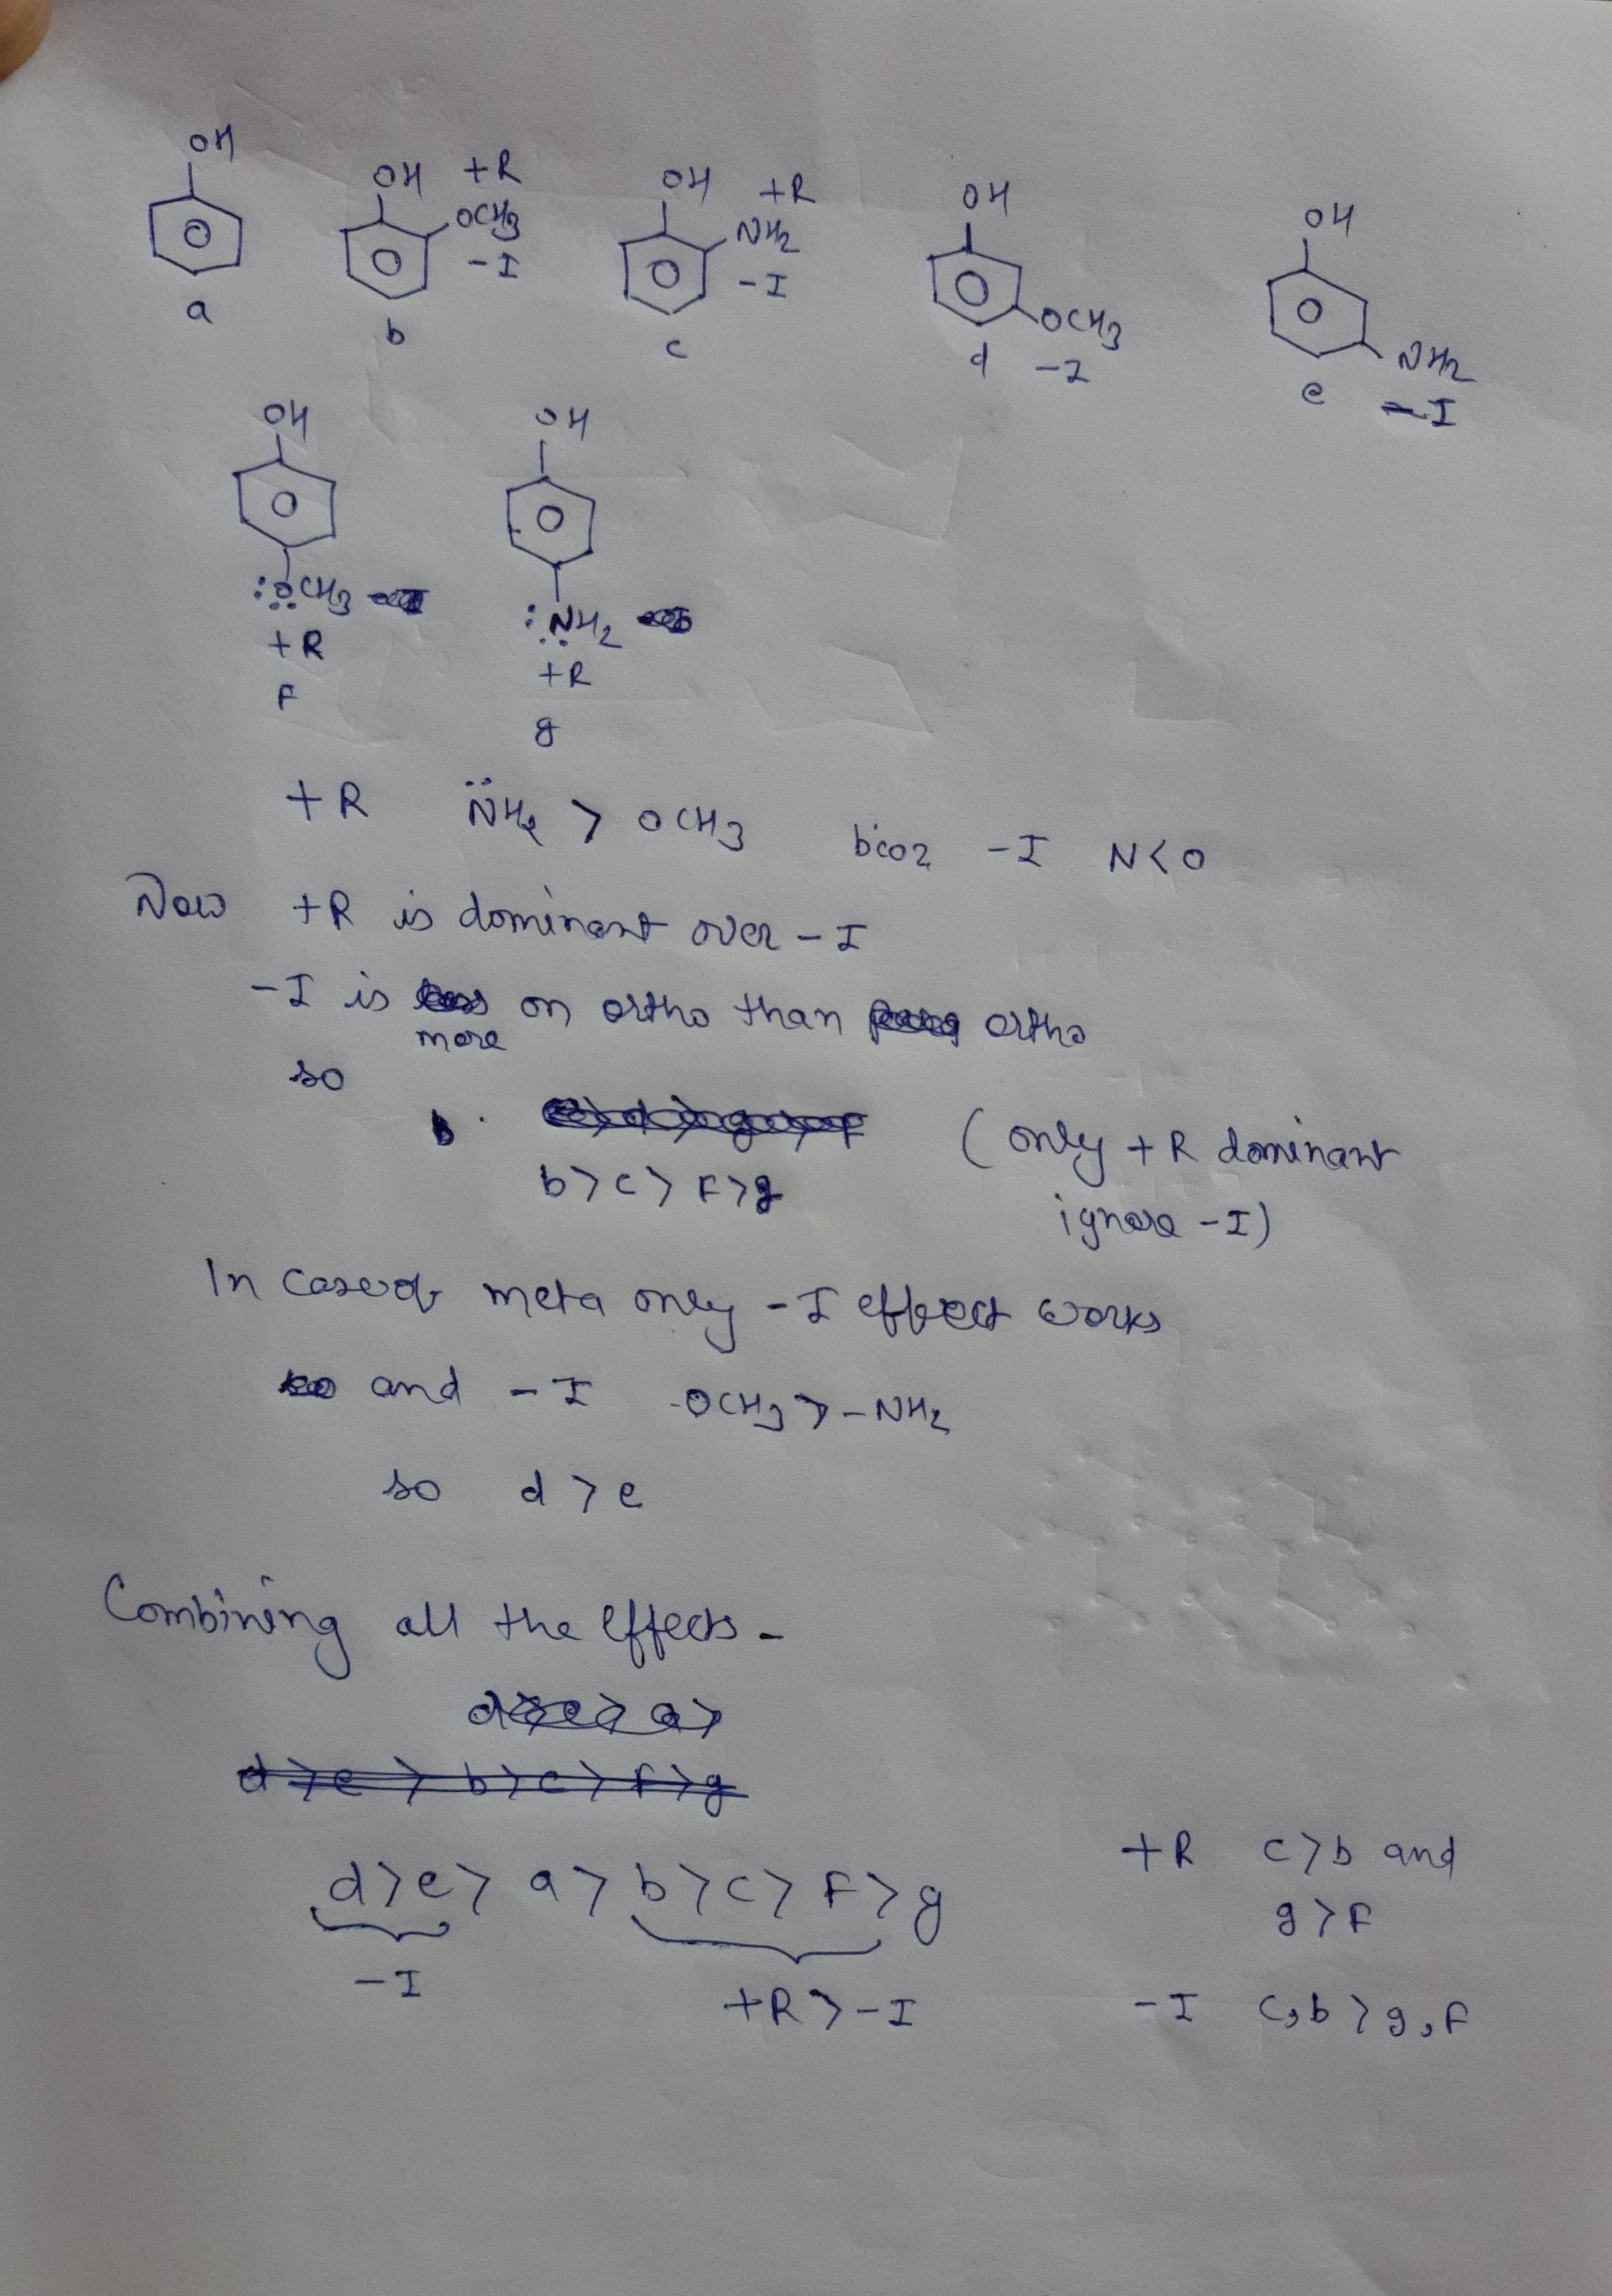 OH
OH +R
OCH3
-I
OH +R
NH2
-I
OH
OCH3
-I
OH
NH2
-I
a
b
c
d
e
OH
:OCH3
+R
F
OH
:NH2
+R
g
+R NH2 > OCH3 b'coz -I N<O
Now +R is dominant over -I
-I is more on ortho than ortho
so
b. (only +R dominant
b>c>F>g ignore -I)
In case of meta only -I effect works
and -I -OCH3 > -NH2
so d > e
Combining all the effects -
d>e>a>
d>e> b>c>F>g
d>e> a> b>c> F>g
-I
+R>-I
+R c>b and
g>F
-I c,b > g,F